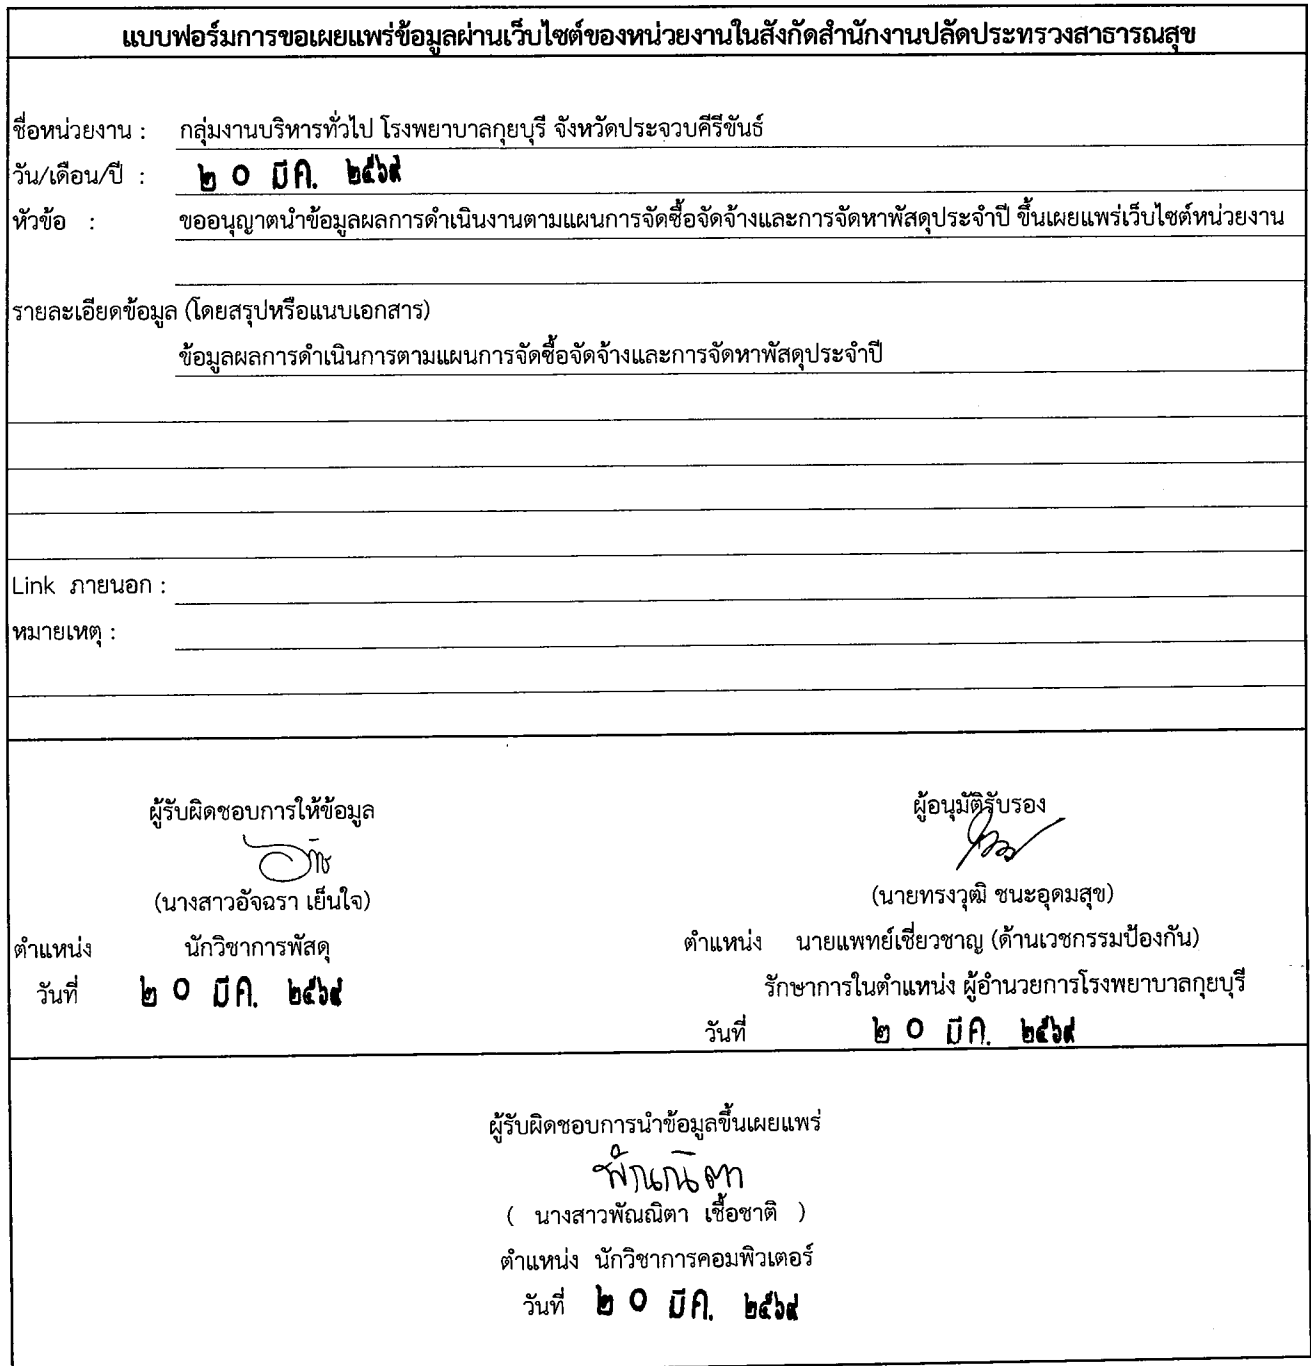 แบบฟอร์มการขอเผยแพร่ข้อมูลผ่านเว็บไซต์ของหน่วยงานในสังกัดสำนักงานปลัดประทรวงสาธารณสุข
ชื่อหน่วยงาน : กลุ่มงานบริหารทั่วไป โรงพยาบาลกุยบุรี จังหวัดประจวบคีรีขันธ์
วัน/เดือน/ปี : ๒๐ มี.ค. ๒๕๖๙
หัวข้อ : ขออนุญาตนำข้อมูลผลการดำเนินงานตามแผนการจัดซื้อจัดจ้างและการจัดหาพัสดุประจำปี ขึ้นเผยแพร่เว็บไซต์หน่วยงาน
รายละเอียดข้อมูล (โดยสรุปหรือแนบเอกสาร)
ข้อมูลผลการดำเนินการตามแผนการจัดซื้อจัดจ้างและการจัดหาพัสดุประจำปี
Link ภายนอก :
หมายเหตุ :
ผู้รับผิดชอบการให้ข้อมูล ผู้อนุมัติรับรอง
(นางสาวอัจฉรา เย็นใจ) (นายทรงวุฒิ ชนะอุดมสุข)
ตำแหน่ง นักวิชาการพัสดุ ตำแหน่ง นายแพทย์เชี่ยวชาญ (ด้านเวชกรรมป้องกัน)
วันที่ ๒๐ มี.ค. ๒๕๖๙ รักษาการในตำแหน่ง ผู้อำนวยการโรงพยาบาลกุยบุรี
วันที่ ๒๐ มี.ค. ๒๕๖๙
ผู้รับผิดชอบการนำข้อมูลขึ้นเผยแพร่
พัณณิตา
( นางสาวพัณณิตา เชื้อชาติ )
ตำแหน่ง นักวิชาการคอมพิวเตอร์
วันที่ ๒๐ มี.ค. ๒๕๖๙